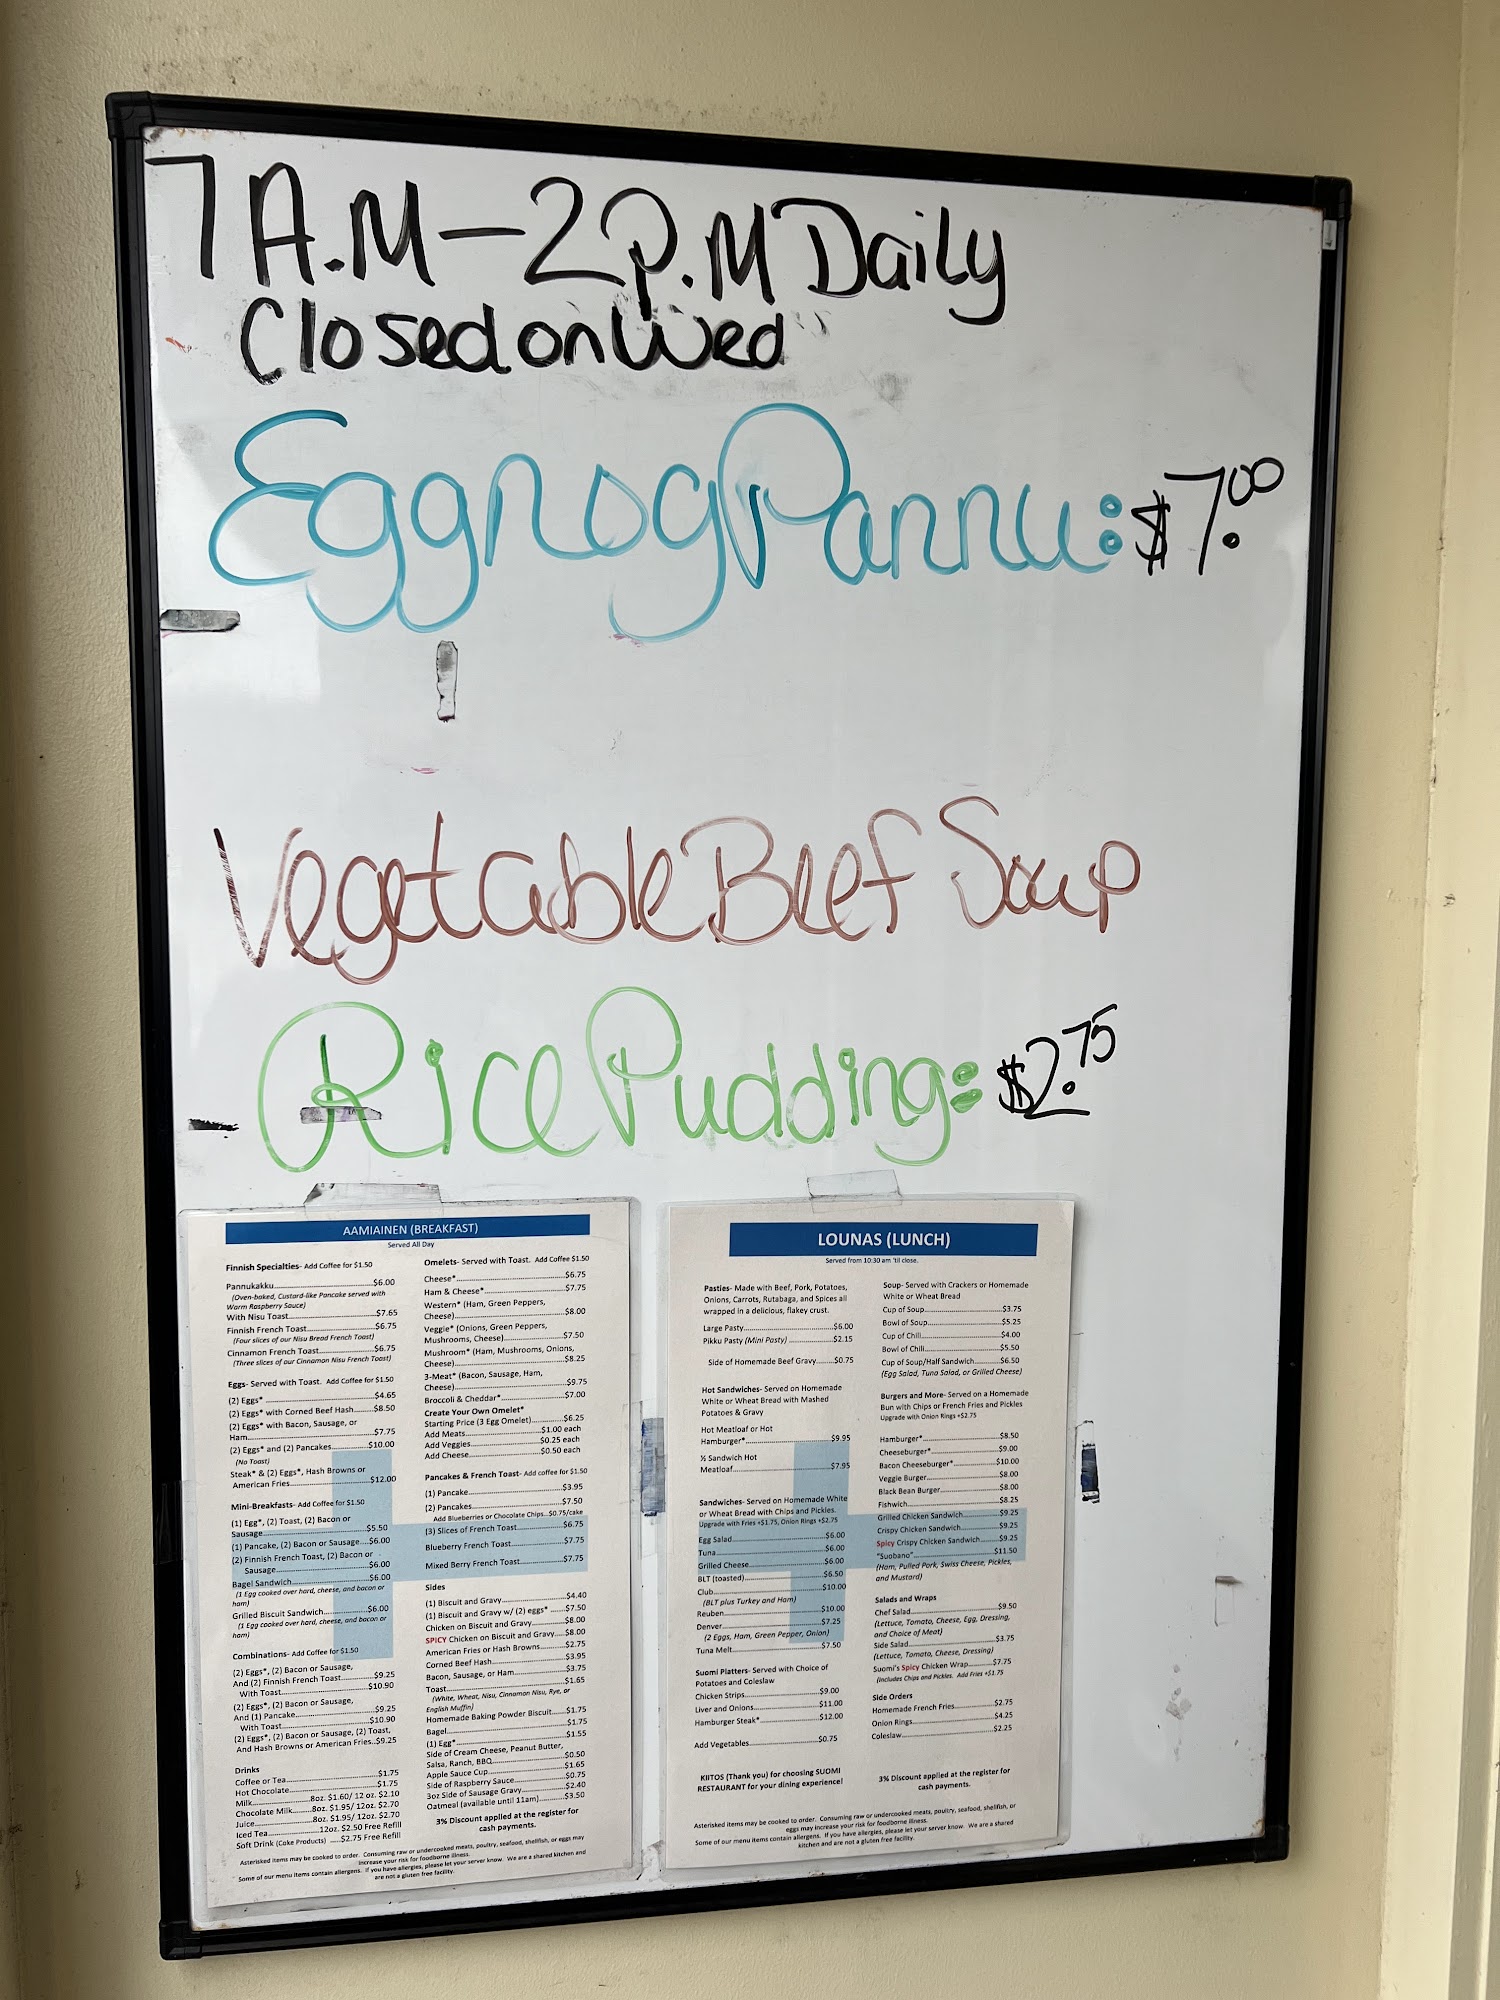 7 A.M - 2 P.M Daily
Closed on Wed
Eggnog Pannu: $7.00
Vegetable Beef Soup
Rice Pudding: $2.75
AAMIAINEN (BREAKFAST)
Served All Day
Finnish Specialties- Add Coffee for $1.50
Pannukakku...$6.00
(Oven-baked, Custard-like Pancake served with
Warm Raspberry Sauce)
With Nisu Toast...$7.65
Finnish French Toast...$6.75
(Four slices of our Nisu Bread French Toast)
Cinnamon French Toast...$6.75
(Three slices of our Cinnamon Nisu French Toast)
Eggs- Served with Toast. Add Coffee for $1.50
(2) Eggs*...$4.65
(2) Eggs* with Corned Beef Hash...$8.50
(2) Eggs* with Bacon, Sausage, or
Ham...$7.75
(2) Eggs* and (2) Pancakes...$10.00
(No Toast)
Steak* & (2) Eggs*, Hash Browns or
American Fries...$12.00
Mini-Breakfasts- Add Coffee for $1.50
(1) Egg*, (2) Toast, (2) Bacon or
Sausage...$5.50
(1) Pancake, (2) Bacon or Sausage...$6.00
(2) Finnish French Toast, (2) Bacon or
Sausage...$6.00
Bagel Sandwich...$6.00
(1 Egg cooked over hard, cheese, and bacon or
ham)
Grilled Biscuit Sandwich...$6.00
(1 Egg cooked over hard, cheese, and bacon or
ham)
Combinations- Add Coffee for $1.50
(2) Eggs*, (2) Bacon or Sausage,
And (2) Finnish French Toast...$9.25
With Toast...$10.90
(2) Eggs*, (2) Bacon or Sausage,
And (1) Pancake...$9.25
With Toast...$10.90
(2) Eggs*, (2) Bacon or Sausage, (2) Toast,
And Hash Browns or American Fries..$9.25
Drinks
Coffee or Tea...$1.75
Hot Chocolate...$1.75
Milk...8oz. $1.60/ 12 oz. $2.10
Chocolate Milk...8oz. $1.95/ 12oz. $2.70
Juice...8oz. $1.95/ 12oz. $2.70
Iced Tea...12oz. $2.50 Free Refill
Soft Drink (Coke Products) ...$2.75 Free Refill
Omelets- Served with Toast. Add Coffee $1.50
Cheese*...$6.75
Ham & Cheese*...$7.75
Western* (Ham, Green Peppers,
Cheese)...$8.00
Veggie* (Onions, Green Peppers,
Mushrooms, Cheese)...$7.50
Mushroom* (Ham, Mushrooms, Onions,
Cheese)...$8.25
3-Meat* (Bacon, Sausage, Ham,
Cheese)...$9.75
Broccoli & Cheddar*...$7.00
Create Your Own Omelet*
Starting Price (3 Egg Omelet)...$6.25
Add Meats...$1.00 each
Add Veggies...$0.25 each
Add Cheese...$0.50 each
Pancakes & French Toast- Add coffee for $1.50
(1) Pancake...$3.95
(2) Pancakes...$7.50
Add Blueberries or Chocolate Chips...$0.75/cake
(3) Slices of French Toast...$6.75
Blueberry French Toast...$7.75
Mixed Berry French Toast...$7.75
Sides
(1) Biscuit and Gravy...$4.40
(1) Biscuit and Gravy w/ (2) eggs* ...$7.50
Chicken on Biscuit and Gravy...$8.00
SPICY Chicken on Biscuit and Gravy...$8.00
American Fries or Hash Browns...$2.75
Corned Beef Hash...$3.95
Bacon, Sausage, or Ham...$3.75
Toast...$1.65
(White, Wheat, Nisu, Cinnamon Nisu, Rye, or
English Muffin)
Homemade Baking Powder Biscuit...$1.75
Bagel...$1.75
(1) Egg*...$1.55
Side of Cream Cheese, Peanut Butter,
Salsa, Ranch, BBQ...$0.50
Apple Sauce Cup...$1.65
Side of Raspberry Sauce...$0.75
3oz Side of Sausage Gravy...$2.40
Oatmeal (available until 11am)...$3.50
3% Discount applied at the register for
cash payments.
Asterisked items may be cooked to order. Consuming raw or undercooked meats, poultry, seafood, shellfish, or eggs may
increase your risk for foodborne illness.
Some of our menu items contain allergens. If you have allergies, please let your server know. We are a shared kitchen and
are not a gluten free facility.
LOUNAS (LUNCH)
Served from 10:30 am 'til close.
Pasties- Made with Beef, Pork, Potatoes,
Onions, Carrots, Rutabaga, and Spices all
wrapped in a delicious, flakey crust.
Large Pasty...$6.00
Pikku Pasty (Mini Pasty) ...$2.15
Side of Homemade Beef Gravy...$0.75
Hot Sandwiches- Served on Homemade
White or Wheat Bread with Mashed
Potatoes & Gravy
Hot Meatloaf or Hot
Hamburger*...$9.95
½ Sandwich Hot
Meatloaf...$7.95
Sandwiches- Served on Homemade White
or Wheat Bread with Chips and Pickles.
Upgrade with Fries +$1.75, Onion Rings +$2.75
Egg Salad...$6.00
Tuna...$6.00
Grilled Cheese...$6.00
BLT (toasted)...$6.50
Club...$10.00
(BLT plus Turkey and Ham)
Reuben...$10.00
Denver...$7.25
(2 Eggs, Ham, Green Pepper, Onion)
Tuna Melt...$7.50
Suomi Platters- Served with Choice of
Potatoes and Coleslaw
Chicken Strips...$9.00
Liver and Onions...$11.00
Hamburger Steak*...$12.00
Add Vegetables...$0.75
KIITOS (Thank you) for choosing SUOMI
RESTAURANT for your dining experience!
Soup- Served with Crackers or Homemade
White or Wheat Bread
Cup of Soup...$3.75
Bowl of Soup...$5.25
Cup of Chili...$4.00
Bowl of Chili...$5.50
Cup of Soup/Half Sandwich...$6.50
(Egg Salad, Tuna Salad, or Grilled Cheese)
Burgers and More- Served on a Homemade
Bun with Chips or French Fries and Pickles
Upgrade with Onion Rings +$2.75
Hamburger*...$8.50
Cheeseburger*...$9.00
Bacon Cheeseburger*...$10.00
Veggie Burger...$8.00
Black Bean Burger...$8.00
Fishwich...$8.25
Grilled Chicken Sandwich...$9.25
Crispy Chicken Sandwich...$9.25
Spicy Crispy Chicken Sandwich...$9.25
"Suobano"...$11.50
(Ham, Pulled Pork, Swiss Cheese, Pickles,
and Mustard)
Salads and Wraps
Chef Salad...$9.50
(Lettuce, Tomato, Cheese, Egg, Dressing,
and Choice of Meat)
Side Salad...$3.75
(Lettuce, Tomato, Cheese, Dressing)
Suomi's Spicy Chicken Wrap...$7.75
(Includes Chips and Pickles. Add Fries +$1.75
Side Orders
Homemade French Fries...$2.75
Onion Rings...$4.25
Coleslaw...$2.25
3% Discount applied at the register for
cash payments.
Asterisked items may be cooked to order. Consuming raw or undercooked meats, poultry, seafood, shellfish, or
eggs may increase your risk for foodborne illness.
Some of our menu items contain allergens. If you have allergies, please let your server know. We are a shared
kitchen and are not a gluten free facility.